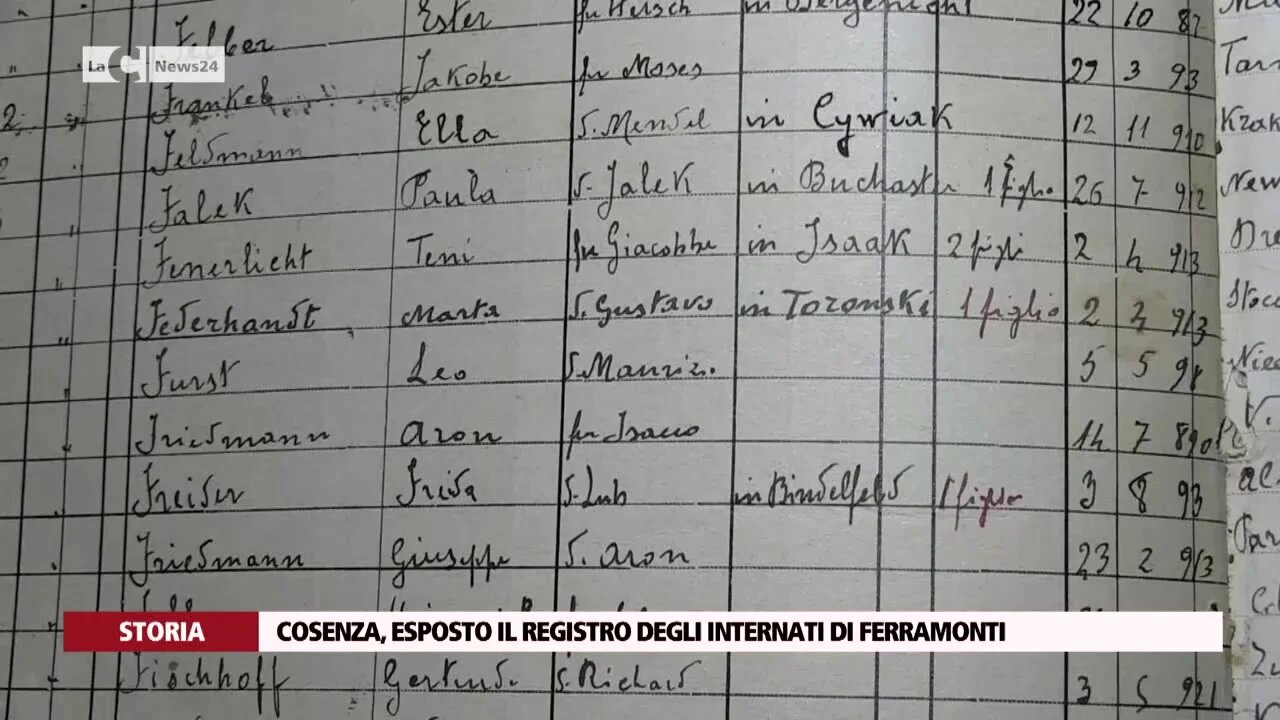 Felber Ester fu Hersch in 22 10 82
La C News24
Frankel Jakobe fu Moses 29 3 93 Tar
2 Feldmann Ella d. Mendel in Cywiak 12 11 910 Krak
Falek Paula d. Jalek in 1 figlio 26 7 912 New
Fenerlicht Teni fu Giacobbe in Isaak 2 figli 2 4 913 Dre
Federhandt Marta d. Gustavo in Toronski 1 figlio 2 913 Stoc
Furst Leo d. Mauriz. 5 5
Friedmann Aron fu Isacco 14 7 890
Freider Frida d. in Bindelfeld 1 figlio 3 8 93
Friedmann Giuseppe d. Aron 23 2 913 Par
STORIA COSENZA, ESPOSTO IL REGISTRO DEGLI INTERNATI DI FERRAMONTI
Fischhoff Gertrud. d. Richard 3 5 921